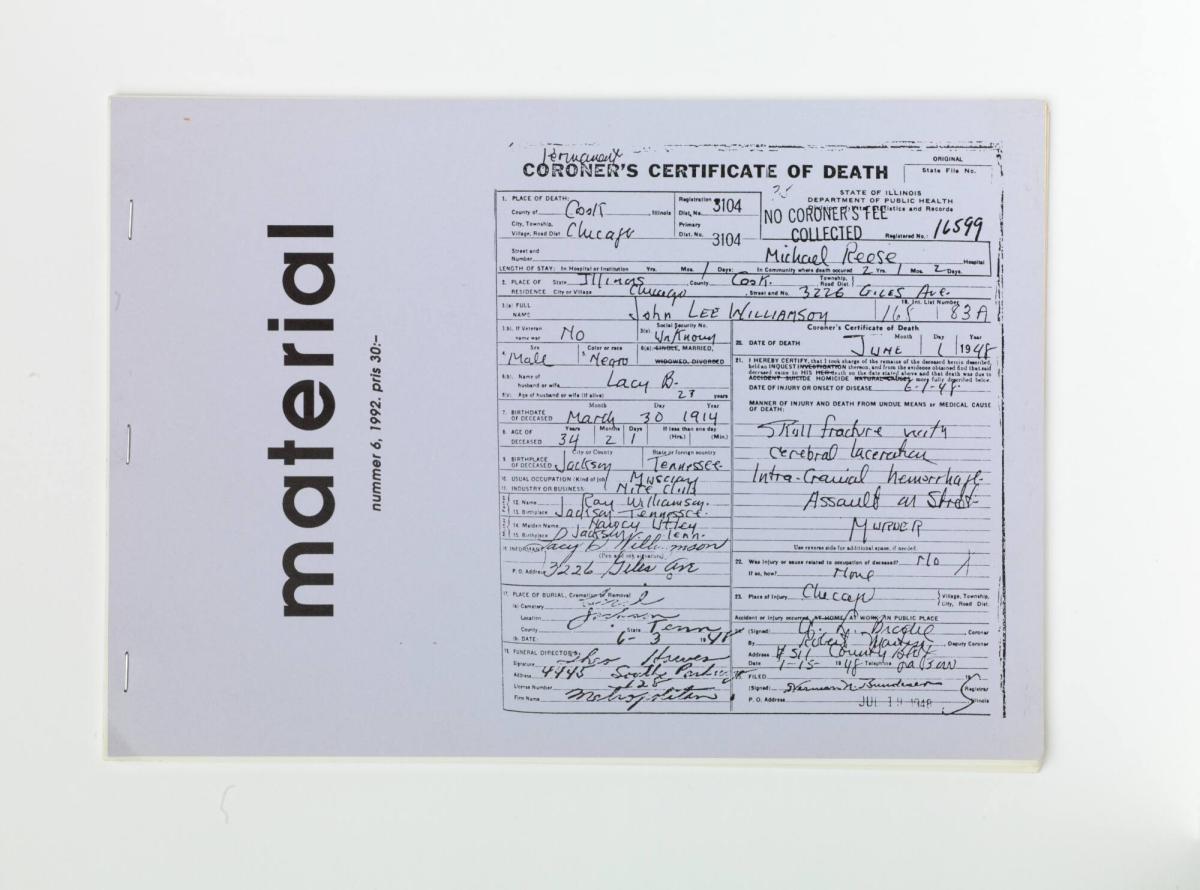 material
nummer 6, 1992. pris 30:-
Permanent
CORONER'S CERTIFICATE OF DEATH
ORIGINAL
State File No.
STATE OF ILLINOIS
DEPARTMENT OF PUBLIC HEALTH
Division of Vital Statistics and Records
NO CORONER'S FEE
COLLECTED
Registered No.: 16599
1. PLACE OF DEATH:
County of Cook, Illinois
Registration Dist. No. 3104
City, Township, Village, Road Dist Chicago
Primary Dist. No. 3104
Street and Number Michael Reese Hospital
LENGTH OF STAY: In Hospital or Institution Yrs. Mos. 1 Days: In Community where death occured 2 Yrs. 1 Mos. 2 Days.
2. PLACE OF RESIDENCE State Illinois, County Cook. Township, Road Dist.
City or Village Chicago, Street and No. 3226 GILES AVE.
3(a) FULL NAME John LEE WILLIAMSON
18. Int. List Number 168 83A
3(b). If Veteran name war No
3(c) Social Security No. UnKnown
4. Sex Male
5. Color or race Negro
6(a) SINGLE, MARRIED, WIDOWED, DIVORCED
6(b). Name of husband or wife Lacy B.
6(c). Age of husband or wife (if alive) 23 years
7. BIRTHDATE OF DECEASED Month March Day 30 Year 1914
8. AGE OF DECEASED Years 34 Months 2 Days 1 If less than one day (Hrs.) (Min.)
9. BIRTHPLACE OF DECEASED City or County Jackson State or foreign country Tennessee
10. USUAL OCCUPATION (Kind of job) Muscian
11. INDUSTRY OR BUSINESS: Nite Club
12. Name Ray Williamson.
13. Birthplace Jackson Tennessee.
14. Maiden Name Nancy Utley
15. Birthplace Jackson Tenn.
16. INFORMANT Lacy B Williamson
(Pen and ink signature)
P. O. Address 3226 Giles Ave
17. PLACE OF BURIAL, Cremation or Removal
(a) Cemetery
Location Jackson
County State Tenn
(b. DATE: 6- 3 1948
18. FUNERAL DIRECTOR'S
Signature Theo Hawes
Address 4445 South Parkway
License Number 128
Firm Name Metropolitan
Coroner's Certificate of Death
20. DATE OF DEATH Month JUNE Day 1 Year 1948
21. I HEREBY CERTIFY, that I took charge of the remains of the deceased herein described,
held an INQUEST INVESTIGATION thereon, and from the evidence obtained find that said
deceased came to HIS HER death on the date stated above and that death was due to
ACCIDENT SUICIDE HOMICIDE NATURAL CAUSES more fully described below.
DATE OF INJURY OR ONSET OF DISEASE 6-1-48.
MANNER OF INJURY AND DEATH FROM UNDUE MEANS or MEDICAL CAUSE
OF DEATH:
Skull fracture with
cerebral laceration
Intra-Cranial hemorrhage-
Assault on Street-
MURDER
Use reverse side for additional space, if needed.
22. Was injury or cause related to occupation of deceased? No
If so, how? None
23. Place of Injury Chicago Village, Township, City, Road Dist.
Accident or injury occurred AT HOME, AT WORK, IN PUBLIC PLACE
(Signed) A. L. Brodie, Coroner
By, Deputy Coroner
Address # 511 County Bldg
Date 1948 Telephone
FILED
(Signed) Herman N. Bundesen Registrar
P. O. Address JUL 19 1948 Illinois